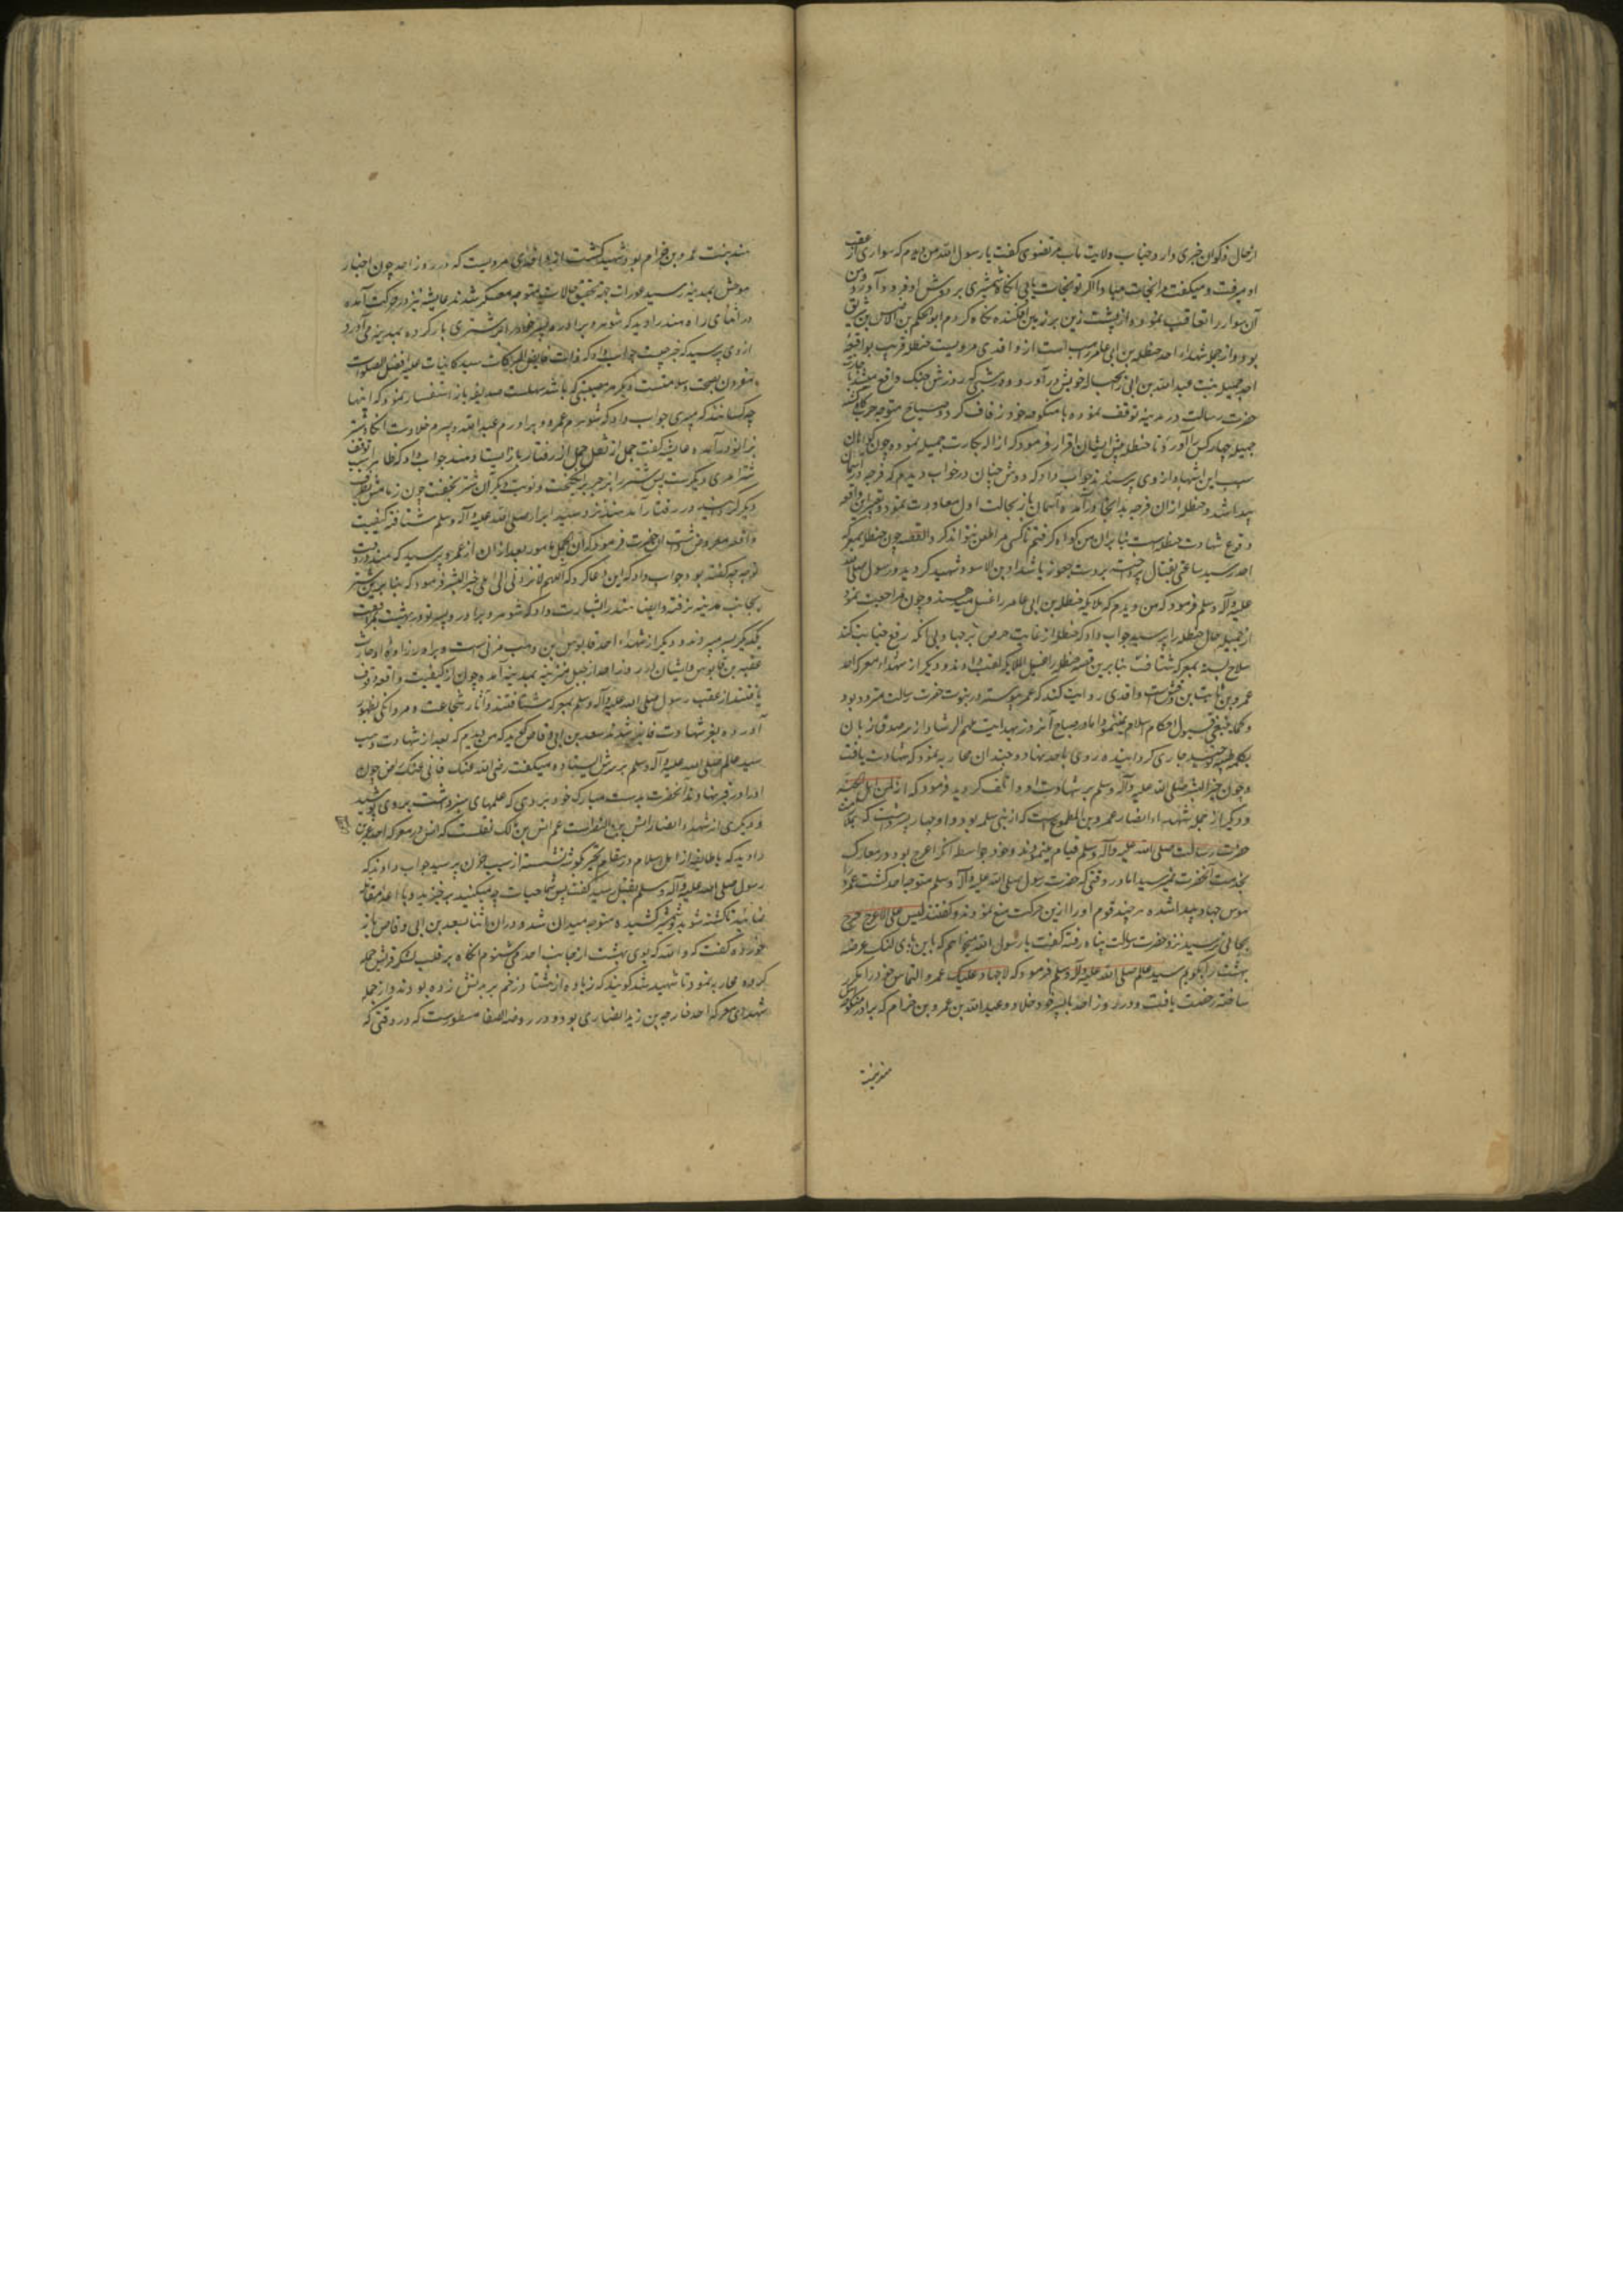 ازحال ذکوان خبری دارد جناب ولایت مآب مرتضوی کفت یا رسول الله من دیدم که سواری از عقب
او میرفت و میکفت مرا نجات مباد اکر تو نجات یابی انکاه شمشیری بر دوش او فرود آورد و من
آن سوار را تعاقب نموده از پشت زین بر زمین افکنده نکاه کردم ابو الحکم بن الاخنس بن شریق
بود و از جمله شهداء احد حنظله بن ابی عامر راهب است از واقدی مرویست حنظله قریب بواقعه
احد جمیله بنت عبد الله بن ابی را بحباله خویش درآورد و در شبی که روزش جنک واقع میشد باجازت
حضرت رسالت در مدینه توقف نموده با منکوحه خود زفاف کرد و صباح متوجه حرب کاه شد
جمیله چهار کس را آورد تا حنظله پیش ایشان اقرار فرمود که ازاله بکارت جمیله نموده و چون کواهان
سبب این اشهاد از وی پرسیدند جواب داد که دوش چنان در خواب دیدم که فرجه در آسمان
پیدا شد و حنظله ازان فرجه بدانجا درآمده آسمان باز بحالت اول معاودت نمود و تعبیر این واقعه
وقوع شهادت حنظله است بنابران من کواه کرفتم تا کسی مرا طعن نتواند کرد و القصه چون حنظله بمعرکه
احد رسید ساعتی بقتال پرداخته بر دست جعونه یا شداد بن الاسود شهید کردید و رسول صلی الله
علیه وآله وسلم فرمود که من دیدم که ملایکه حنظله بن ابی عامر را غسل میدهند و چون مراجعت نمود
از جمیله حال حنظله را پرسید جواب داد که حنظله از غایت حرص بر جهاد بی آنکه رفع جنابت کند
سلاح بسته بمعرکه شتافت بنابرین قصه حنظله را غسیل الملایکه لقب دادند و دیکر از شهداء معرکه احد
عمرو بن ثابت بن وقش است واقدی روایت کند که عمرو پیوسته در نبوت حضرت رسالت متردد بود
و کما ینبغی قبول احکام اسلام نمینمود اما در صباح آنروز بهدایت ملهم الرشاد از سر صدق زبان
بکلمه طیبه توحید جاری کردانیده روی باحد نهاد و چندان محاربه نمود که شهادت یافت
و چون خیر البشر صلی الله علیه وآله وسلم بر شهادت او واقف کردید فرمود که انه لمن اهل الجنة
و دیکر از جمله شهداء انصار عمرو بن الجموح است که از بنی سلمه بود و او چهار پسر داشت که بملازمت
حضرت رسالت صلی الله علیه وآله وسلم قیام مینمودند و خود بواسطه آنکه اعرج بود در معارک
بخدمت آنحضرت نمیرسید اما در وقتی که حضرت رسول صلی الله علیه وآله وسلم متوجه احد کشت عمرو را
هوس جهاد پیدا شده هر چند قوم او را ازین حرکت منع نمودند و کفتند لیس علی الاعرج حرج
بجائی نرسید نزد حضرت رسالت پناه رفته کفت یا رسول الله میخواهم که با این پای لنک عرصه
بهشت را بکوبم سید عالم صلی الله علیه وآله وسلم فرمود که لا جهاد علیک عمرو التماس خود را مکرر
ساخته رخصت یافت و در روز احد با پسر خود خلاد و عبد الله بن عمرو بن حرام که برادر منکوحه اش
هند بنت
هند بنت عمرو بن حرام بود شهید کشت از واقدی مرویست که در روز احد چون اخبار
موحش بمدینه رسید عورات جهة تحقیق حالات متوجه معسکر شدند عایشه نیز در حرکت آمده
در اثنای راه هند را دید که شوهر و برادر و پسر خود را بر شتری بار کرده بمدینه می آورد
از وی پرسید که خبر چیست جواب داد که ذات فایض البرکات سید کاینات علیه افضل الصلوات
مقرون بصحت و سلامتست و دیکر هر مصیبتی که باشد سهلست صدیقه باز استفسار نمود که اینها
چه کسانند که میبری جواب داد که شوهرم عمرو و برادرم عبد الله و پسرم خلاد است انکاه شتر
بزانو درآمده عایشه کفت جمل از ثقل حمل از رفتار باز ایستاد هند جواب داد که ظاهرا سبب توقف
شتر امری دیکرست پس شتر را بزجر برانکیخت و نوبت دیکر آن شتر بخفت چون زمامش بطرف
دیکر کردانید در رفتار آمد هند نزد سید ابرار صلی الله علیه وآله وسلم شتافته کیفیت
واقعه معروض داشت آن حضرت فرمود که ان الجمل مامور بعد ازان از عمرو پرسید که هند در وقت
توجه چه کفته بود جواب داد که این دعا کرد که اللهم لا تردنی الی اهلی خیر البشر فرمود که بنابرین شتر
بجانب مدینه نرفته و ایضا هند را بشارت داد که شوهر و برادر و پسر تو در بهشت بمرافقت
یکدیکر بسر میبرند و دیکر از شهداء احد قابوس بن وهب مزنی است و برادرزاده او حارث
عقبه بن قابوس و ایشان در روز احد از جبل مزینه بمدینه آمده چون از کیفیت واقعه وقوف
یافتند از عقب رسول صلی الله علیه وآله وسلم بمعرکه شتافتند و آثار شجاعت و مردانکی بظهور
آورده بعز شهادت فایز شدند سعد بن ابی وقاص کوید که من دیدم که بعد از شهادت وهب
سید عالم صلی الله علیه وآله وسلم بر سرش ایستاده میکفت رضی الله عنک فانی عنک راض چون
او را در قبر نهادند آنحضرت بدست مبارک خود بردی که علمهای سبز داشت بر وی پوشید
و دیکری از شهداء انصار انس بن النضر است عم انس بن مالک نقلست که انس در معرکه احد عمر
را دید که با طایفه از اهل اسلام در مقام تحیر کوشه نشسته از سبب حزن پرسید جواب دادند که
رسول صلی الله علیه وآله وسلم بقتل رسید کفت پس شما حیات چه میکنید برخیزید و با اعدا مقاتله
نمائید تا کشته شوید و شمشیر کشیده متوجه میدان شد و دران اثنا سعد بن ابی وقاص باز
خورده کفت که والله که بوی بهشت از جانب احد می شنوم انکاه بر قلب لشکر قریش حمله
کرده محاربه نمود تا شهید شد کویند که زیاده از هشتاد زخم بر بدنش زده بودند و از جمله
شهدای معرکه احد خارجه بن زید انصاری بود و در روضه الصفا مسطورست که در وقتی که